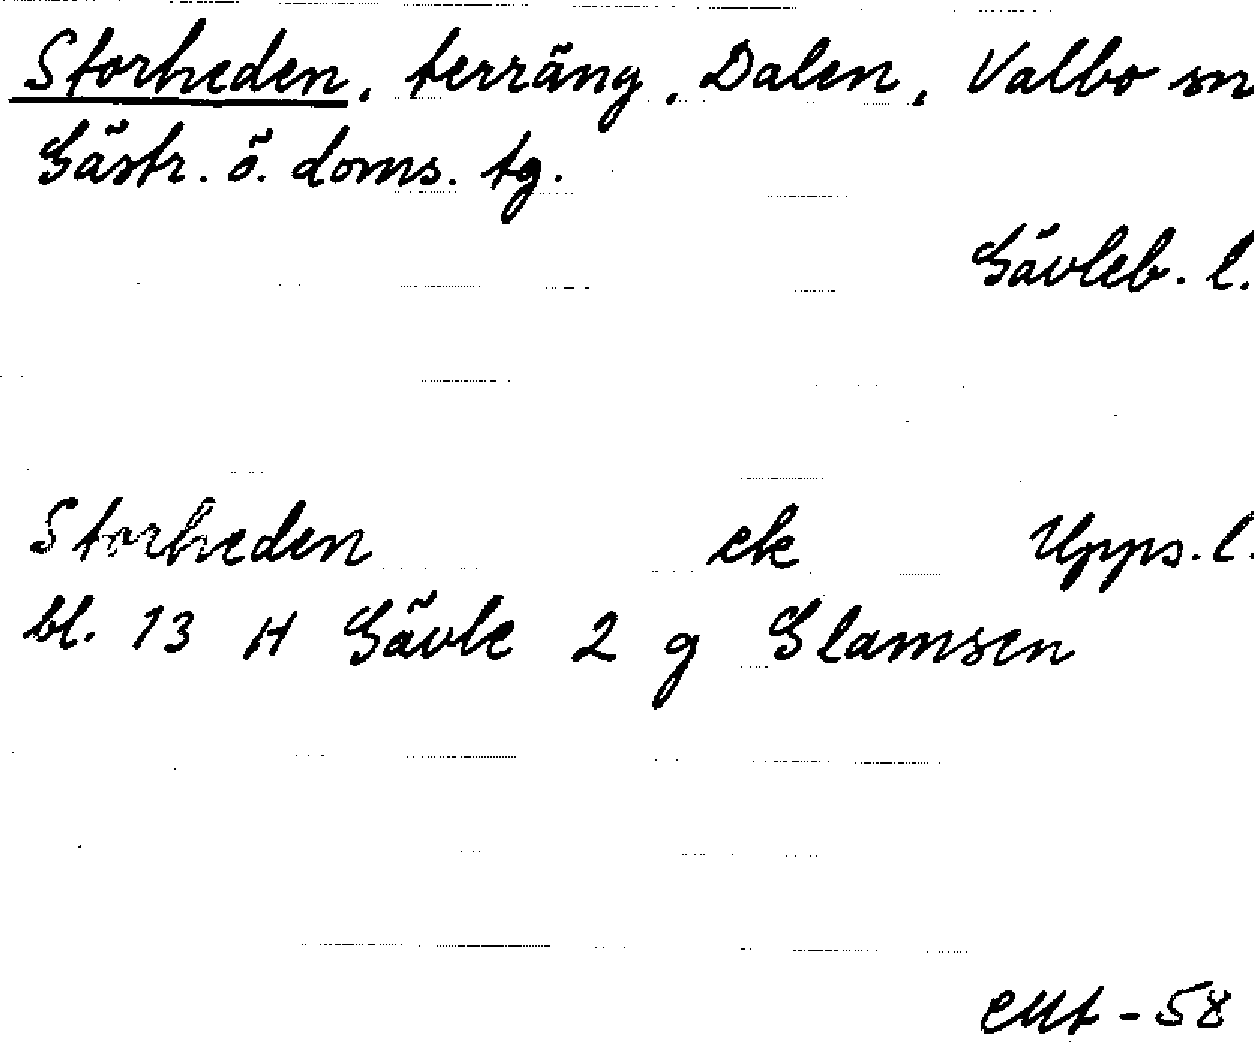 Storheden, terräng, Dalen, Valbo sn
Gästr. ö. doms. tg.
Gävleb. l.
Storheden ek Upps. l.
bl. 13 H Gävle 2 g Glamsen
-58